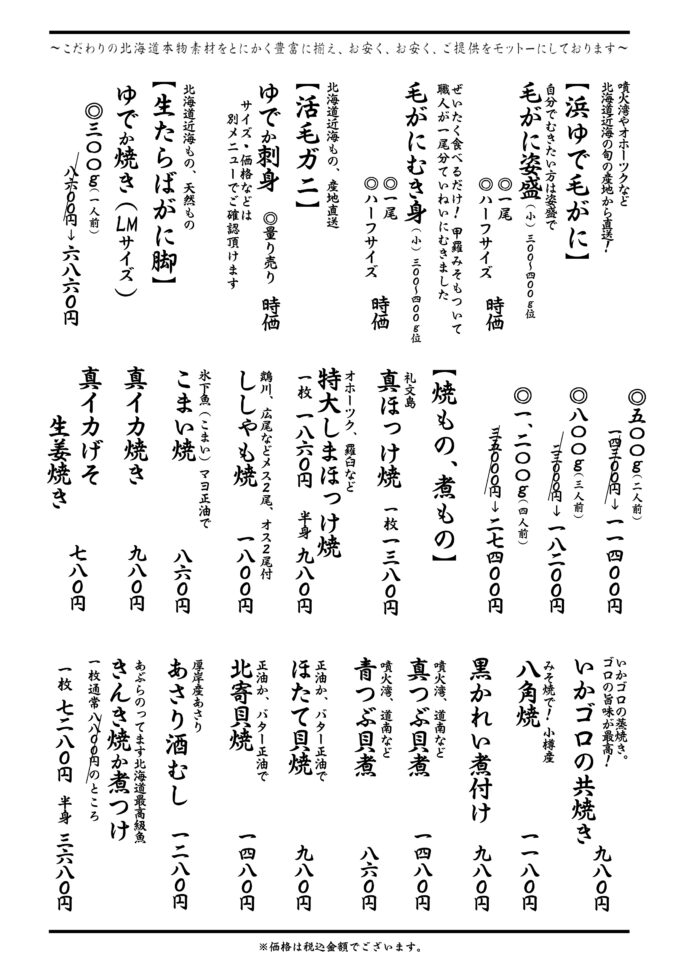 ～こだわりの北海道本物素材をとにかく豊富に揃え、お安く、お安く、ご提供をモットーにしております～
噴火湾やオホーツクなど
北海道近海の旬の産地から直送！
【浜ゆで毛がに】
自分でむきたい方は姿盛で
毛がに姿盛（小）三〇〇～四〇〇ｇ位
◎一尾
◎ハーフサイズ 時価
ぜいたく食べるだけ！ 甲羅みそもついて
職人が一尾分ていねいにむきました
毛がにむき身（小）三〇〇～四〇〇ｇ位
◎一尾
◎ハーフサイズ 時価
北海道近海もの、産地直送
【活毛ガニ】
ゆでか刺身 ◎量り売り 時価
サイズ・価格などは
別メニューでご確認頂けます
北海道近海もの、天然もの
【生たらばがに脚】
ゆでか焼き（LMサイズ）
◎三〇〇ｇ（一人前）
八六〇〇円→六八六〇円
◎五〇〇ｇ（二人前）
一四三〇〇円→一一四〇〇円
◎八〇〇ｇ（三人前）
→一八二〇〇円
◎一、二〇〇ｇ（四人前）
→二七四〇〇円
【焼もの、煮もの】
礼文島
真ほっけ焼 一枚 一三八〇円
オホーツク、羅臼など
特大しまほっけ焼
一枚 一八六〇円 半身 九八〇円
鵡川、広尾などメス２尾、オス２尾付
ししゃも焼 一八〇〇円
氷下魚（こまい）マヨ正油で
こまい焼 八六〇円
真イカ焼き 九八〇円
真イカげそ
生姜焼き 七八〇円
いかゴロの蒸焼き。
ゴロの旨味が最高！
いかゴロの共焼き 九八〇円
みそ焼で！ 小樽産
八角焼 一一八〇円
黒かれい煮付け 九八〇円
噴火湾、道南など
真つぶ貝煮 一四八〇円
噴火湾、道南など
青つぶ貝煮 八六〇円
正油か、バター正油で
ほたて貝焼 九八〇円
正油か、バター正油で
北寄貝焼 一四八〇円
厚岸産あさり
あさり酒むし 一二八〇円
あぶらのってます北海道最高級魚
きんき焼か煮つけ
一枚通常八八〇〇円のところ
一枚 七二八〇円 半身 三六八〇円
※価格は税込金額でございます。